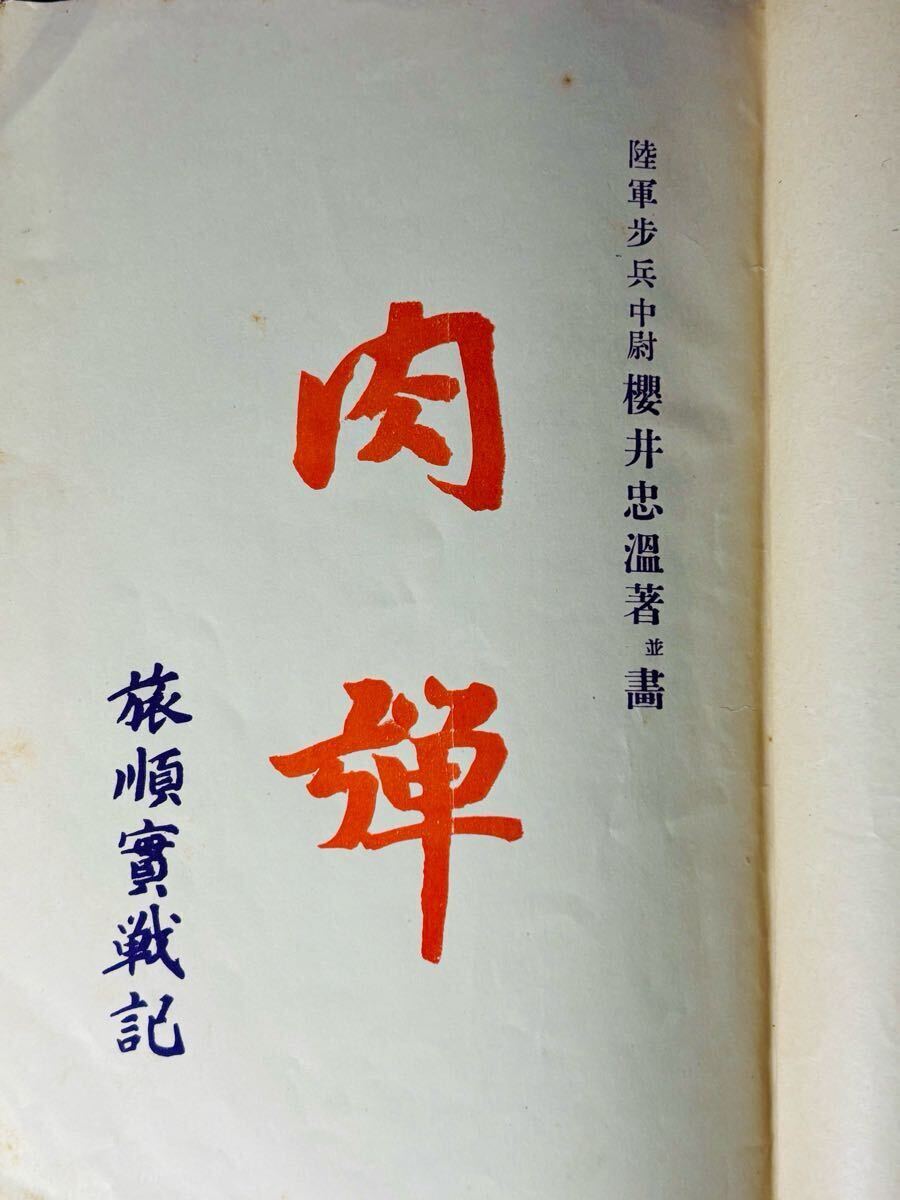 陸軍步兵中尉 櫻井忠溫著並畵
肉彈
旅順實戰記